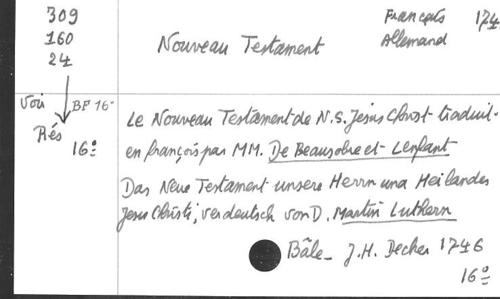 309
160
24
Français 174
Allemand
Nouveau Testament
Voir BF 16°
Rés
16°
Le Nouveau Testament de N.S. Jésus Christ traduit
en français par MM. De Beausobre et Lenfant
Das Neue Testament unsers Herrn und Heilandes
Jesu Christi, verdeutsch von D. Martin Luthern
Bâle_ J.H. Decker 1746
16°